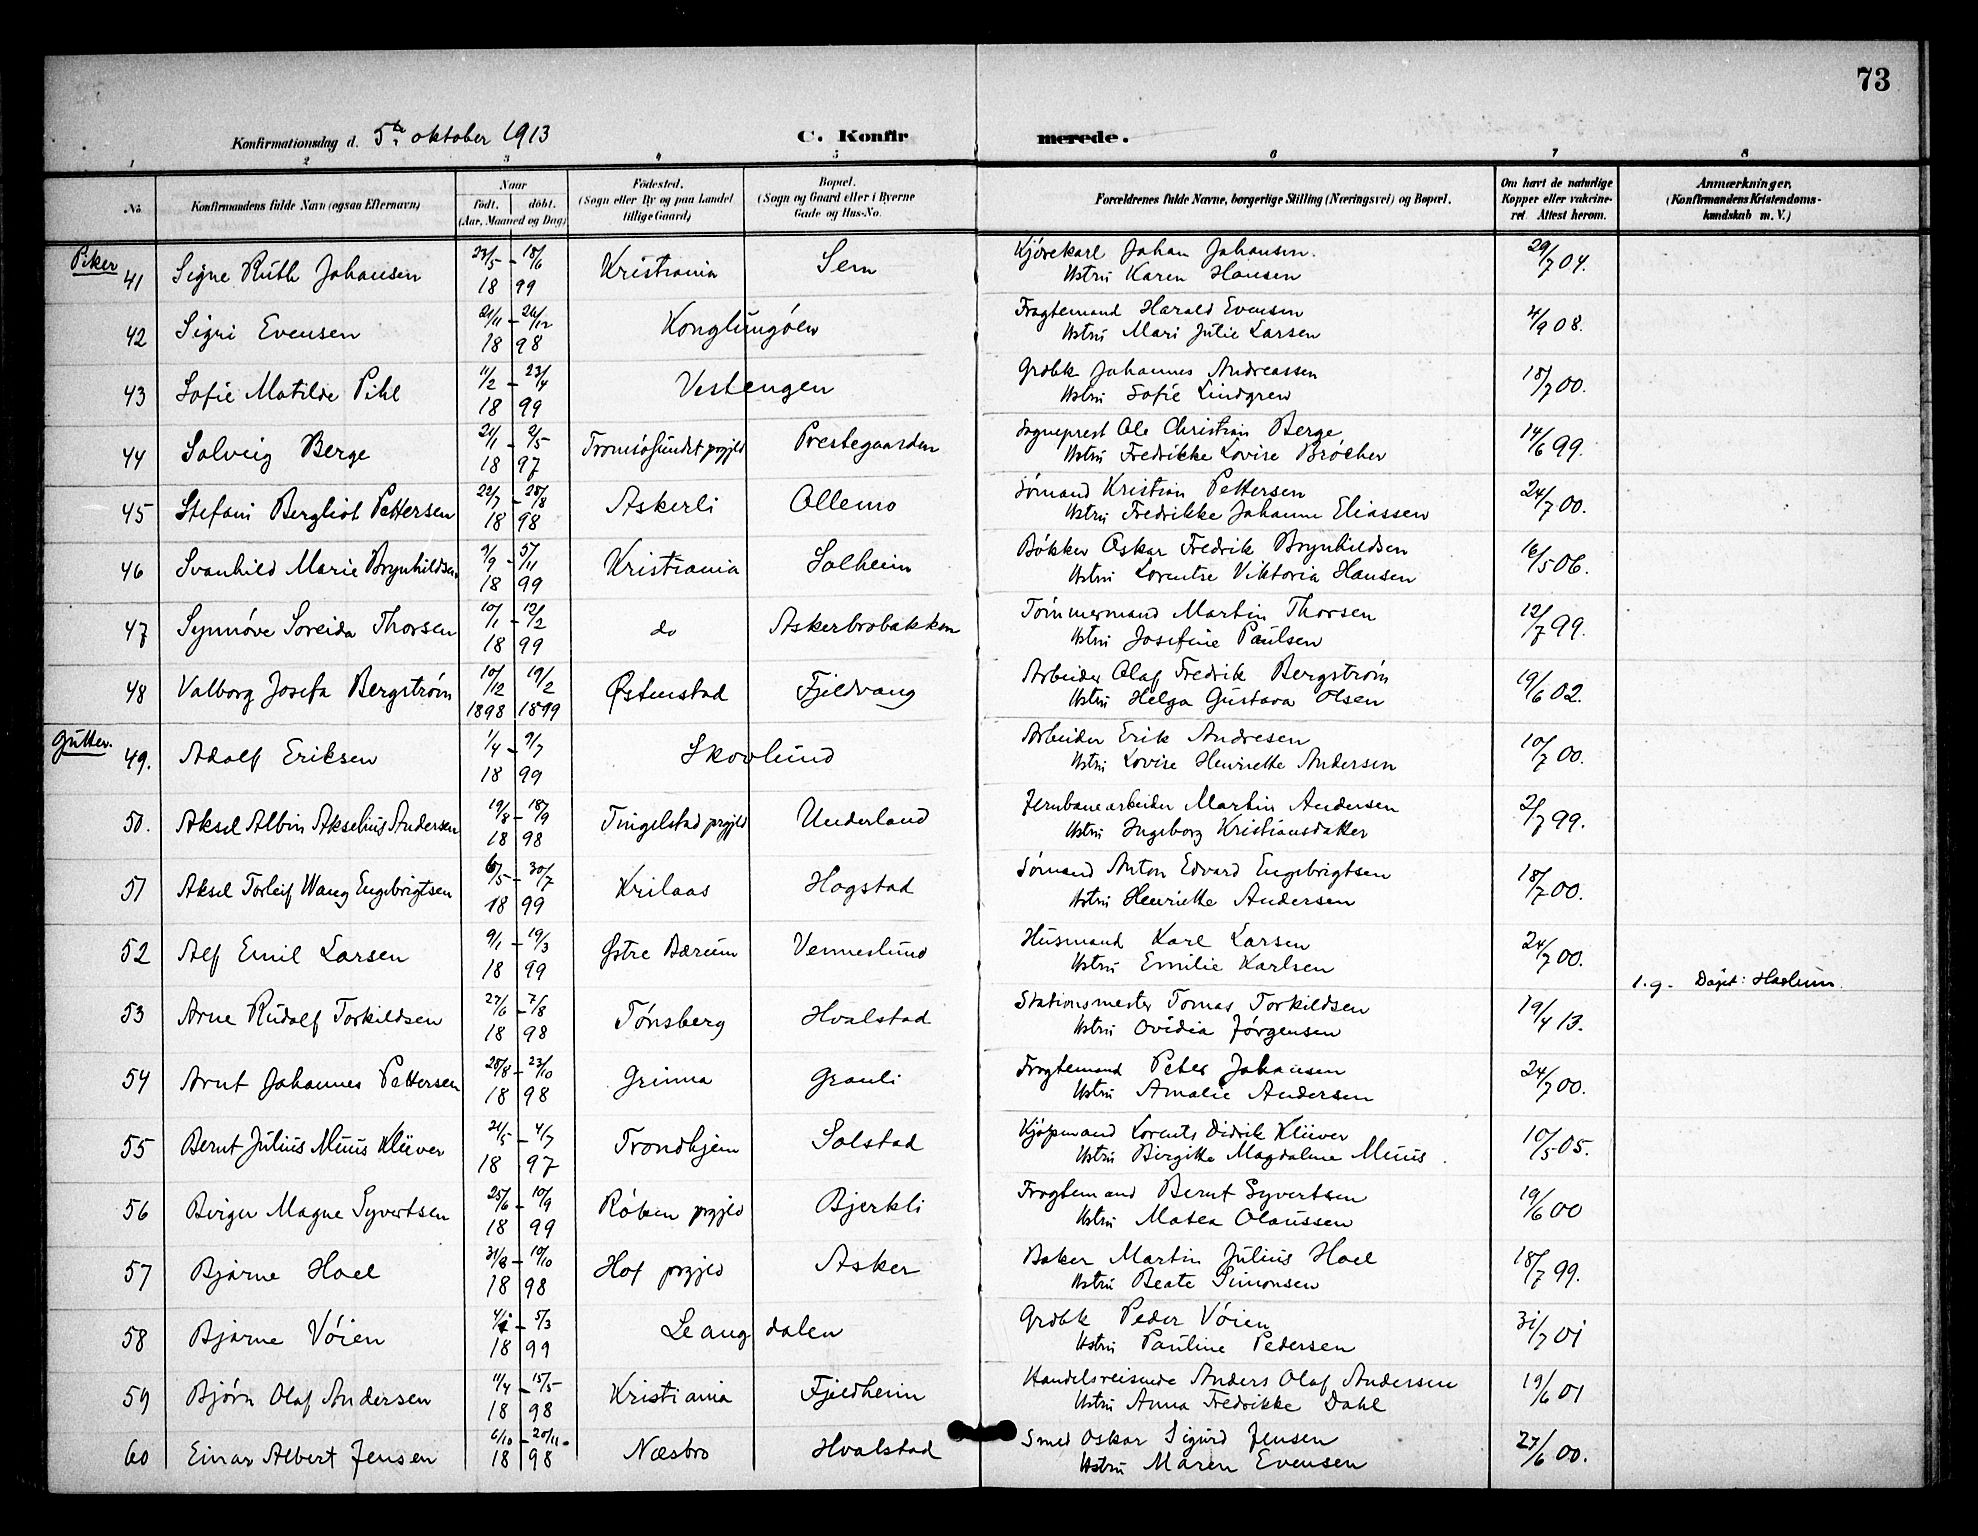 73
Konfirmationsdag d. 5te oktober 1913
C. Konfirmerede.
1 2 3 4 5 6 7 8
No
Konfirmandens fulde Navn (ogsaa Efternavn)
Naar
født. døbt.
(Aar, Maaned og Dag)
Fødested.
(Sogn eller By og paa Landet
tillige Gaard)
Bopæl.
(Sogn og Gaard eller i Byerne
Gade og Hus-No.
Forældrenes fulde Navne, borgerlige Stilling (Næringsvei) og Bopæl.
Om havt de naturlige
Kopper eller vakcine-
ret. Attest herom.
Anmærkninger,
(Konfirmandens Kristendoms-
kundskab m. V.)
Piker
41 Signe Ruth Johansen 18/6 1899 Kristiania Sem Kjørekarl Johan Johansen. 29/7 04.
Hstru Karen Hansen
42 Sigri Evensen 21/11 - 26/12 1898 Konglungøen Fragtemand Harald Evensen 4/9 08.
Hstru Mari Julie Larsen
43 Sofie Matilde Pihl 11/2 - 23/4 1899 Vestengen Grdbk Johannes Andreassen 18/7 00.
Hstru Sofie Lindgren
44 Solveig Berge 21/1 - 2/5 1897 Tromøsundet prgjld Prestegaarden Sogneprest Ole Christian Berge 14/6 99.
Hstru Fredrikke Lovise Brøcher
45 Stefani Bergliot Pettersen 22/7 - 28/8 1898 Askerli Ollemo Sømand Kristian Pettersen 24/7 00.
Hstru Fredrikke Johanne Eliassen
46 Svanhild Marie Brynhildsen 9/9 - 5/11 1899 Kristiania Solheim Bøkker Oskar Fredrik Brynhildsen 16/5 06.
Hstru Lorentse Viktoria Hansen
47 Synnøve Soreida Thorsen 10/1 - 12/2 1899 do Askerbrobakken Tømmermand Martin Thorsen 12/7 99.
Hstru Josefine Paulsen
48 Valborg Josefa Bergstrøm 10/12 1898 19/2 1899 Østenstad Fjeldvang Arbeider Olaf Fredrik Bergstrøm 19/6 02.
Hstru Helga Gustava Olsen
Gutter.
49. Adolf Eriksen 1/4 - 9/7 1899 Skovlund Arbeider Erik Andresen 10/7 00.
Hstru Lovise Henriette Andersen
50. Aksel Albin Akselius Andersen 19/8 - 18/9 1898 Tingelstad prgjld Underland Jernbanearbeider Martin Andersen 2/7 99.
Hstru Ingeborg Kristiansdatter
51 Aksel Torleif Wang Engebrigtsen 6/5 - 30/7 1899 Krilaas Hogstad Sømand Anton Edvard Engebrigtsen 18/7 00.
Hstru Henriette Andersen
52 Alf Emil Larsen 9/1 - 19/3 1899 Østre Bærum Venneslund Husmand Karl Larsen 24/7 00.
Hstru Emilie Karlsen
53 Arne Rudolf Torkildsen 27/6 - 7/8 1898 Tønsberg Hvalstad Stationsmester Tomas Torkildsen 19/4 13. 1.g. Døpt: Haslum.
Hstru Ovidia Jørgensen
54 Arnt Johannes Pettersen 28/8 - 23/10 1898 Grinna Granli Fragtemand Peter Johansen 24/7 00.
Hstru Amalie Andersen
55 Bernt Julius Muus Klüver 21/5 - 4/7 1897 Trondhjem Solstad Kjøpmand Lorents Didrik Klüver 10/5 05.
Hstru Birgitte Magdalene Muus.
56 Birger Magne Syvertsen 25/6 - 10/9 1899 Røken prgjld Bjerkli Fragtemand Bernt Syvertsen 19/6 00
Hstru Matea Olaussen
57 Bjarne Hoel 31/8 - 10/10 1898 Hof prgjld Asker Baker Martin Julius Hoel 18/7 99.
Hstru Beate Simonsen
58 Bjarne Vøien 5/3 1899 Leangdalen Grdbk Peder Vøien 31/7 01
Hstru Pauline Pedersen
59 Bjørn Olaf Andersen 11/4 - 15/5 1898 Kristiania Fjeldheim Handelsreisende Anders Olaf Andersen 19/6 01
Hstru Anna Fredrikke Dahl
60 Einar Albert Jensen 6/10 - 20/11. 1898 Næsbro Hvalstad Smed Oskar Sigurd Jensen 27/6 00.
Hstru Maren Evensen